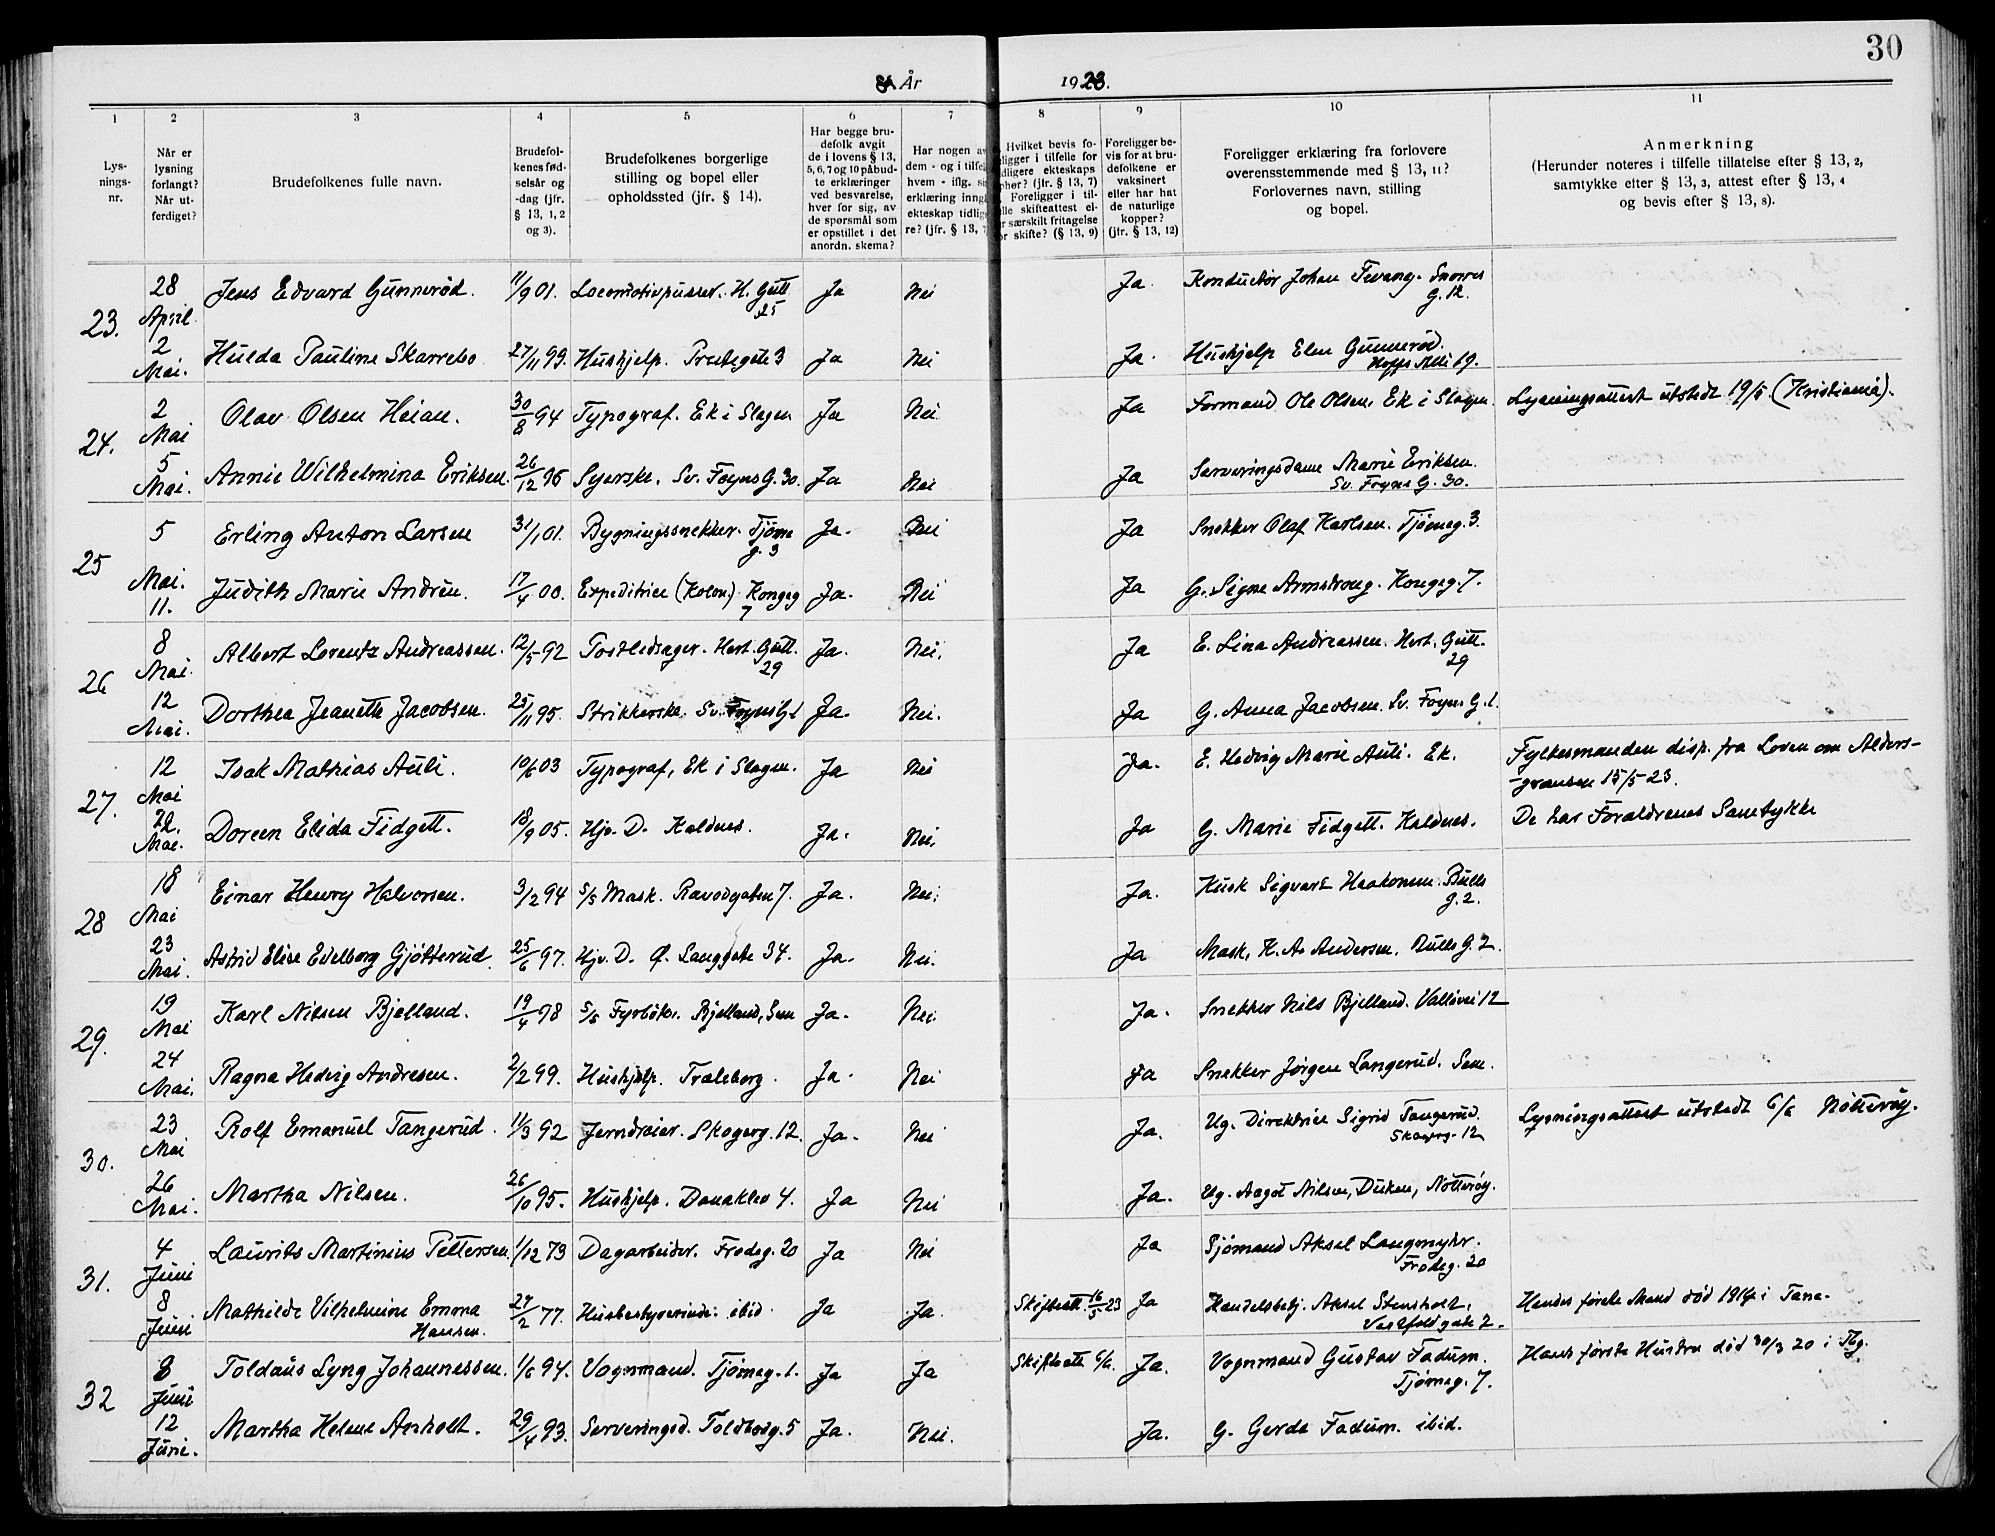 30
År 1923.
1 2 3 4 5 6 7 8 9 10 11
Lys-
nings-
nr.
Når er
lysning
forlangt?
Når ut-
ferdiget?
Brudefolkenes fulle navn.
Brudefol-
kenes fød-
selsår og
-dag (jfr.
§ 13, 1, 2
og 3).
Brudefolkenes borgerlige
stilling og bopel eller
opholdssted (jfr. § 14).
Har begge bru-
defolk avgit
de i lovens § 13,
5, 6, 7 og 10 påbud-
te erklæringer
ved besvarelse,
hver for sig, av
de spørsmål som
er opstillet i det
anordn. skema?
Har nogen av
dem - og i tilfel
hvem - iflg. si
erklæring inng
ekteskap tidlig
re? (jfr. § 13, 7
Hvilket bevis fo-
ligger i tilfelle for
dligere ekteskaps
phør? (jfr. § 13, 7)
Foreligger i til-
lle skifteattest el-
r særskilt fritagelse
or skifte? (§ 13, 9)
Foreligger be-
vis for at bru-
defolkene er
vaksinert
eller har hat
de naturlige
kopper?
(jfr. § 13, 12)
Foreligger erklæring fra forlovere
overensstemmende med § 13, 11?
Forlovernes navn, stilling
og bopel.
Anmerkning
(Herunder noteres i tilfelle tillatelse efter § 13, 2,
samtykke efter § 13, 3, attest efter § 13, 4
og bevis efter § 13, 8).
23. 28 April Jens Edvard Gunnerød. 11/9 01. Locomotivpusser. H. Gutt. 25 Ja Nei Ja Konductør Johan Tevang. Snorres G. 12.
2 Mai. Hulda Pauline Skarrebo 27/11 99. Hushjelp. Prestegate 3 Ja Nei Ja. Hushjelp Elen Gunnerød. Alle 19.
24. 2 Mai Olav Olsen Heian. 30/8 94 Typograf. Ek i Slagen Ja Nei Ja Formand Ole Olsen, Ek i Slagen Lysningsattest utstedt 19/5 (Kristiania).
5 Mai. Annie Wilhelmina Eriksen. 26/12 96 Syerske. Sv. Foyns G. 30. Ja Nei Ja Serveringsdame Marie Eriksen. Sv. Foyns G. 30.
25 5 Erling Anton Larsen 31/1 01. Bygningssnekker. Tjøme g. 3 Ja. Nei Ja Snekker Olaf Karlsen. Tjømeg. 3.
Mai. 11. Judith Marie Andrén. 17/4 00. Expeditrice (Kolon.) Kongeg 7 Ja. Nei Ja G. Signe Armstrong. Kongeg. 7.
26 8 Mai. Albert Lorentz Andreassen. 12/5 92 Postbedrager. Hert. Gutt. 29 Ja. Nei. Ja E. Lina Andreassen. Hert. Gutt. 29
12 Mai. Dorthea Jeanette Jacobsen. 25/11 95. Strikkerske. Sv. Foyns G. 1 Ja. Nei. Ja G. Anna Jacobsen. Sv. Foyns G. 1.
27. 12 Mai Isak Mathias Auli. 10/6 03 Typograf, Ek i Slagen. Ja Nei Ja. E. Hedvig Marie Auli. Ek. Fylkesmanden disp. fra Loven om Alders-
-grænsen 15/5 23.
22. Mai. Doreen Elida Fidgett. 18/9 05. Hjv. D. Kaldnes. Ja. Nei. Ja G. Marie Fidgett. Kaldnes. De har Forældrenes Samtykke
28 18 Mai Einar Henry Halvorsen. 3/2 94 S/S Mask. Ravodgaten 7. Ja. Nei. Ja. Kusk Sigvart Haakonsen. Bulls g. 2.
23 Mai. Astrid Elise Edelborg Gjøtterud. 25/6 97. Hjv. D. Ø. Langgate 34. Ja. Nei. Ja Mask. K. A. Andersen. Bulls G. 2.
29. 19 Mai Karl Nilsen Bjelland. 19/4 98 S/S Fyrbøter. Bjelland, Sem Ja. Nei. Ja. Snekker Nils Bjelland. Valløvei 12
24 Mai. Ragna Hedvig Andresen. 2/2 99. Hushjelp. Træleborg. Ja. Nei Ja Snekker Jørgen Langerud. Sem.
30. 23 Mai Rolf Emanuel Tangerud. 11/3 92 Jerndreier. Skogerg. 12. Ja. Nei Ja. Ug. Direktrice Sigrid Tangerud. Skogerg. 12 Lysningsattest utstedt 6/6 Nøtterøy.
26 Mai. Martha Nilsen. 26/10 95. Hushjelp. Donaklev 4. Ja Nei Ja. Ug. Aagot Nilsen, Duken, Nøtterøy.
31. 4 Juni Laurits Martinius Pettersen. 1/12 73 Dagarbeider. Frodeg. 20 Ja Nei Ja Sjømand Aksel Langmyhr. Frodeg. 20
8 Juni Mathilde Vilhelmine Emma Hansen. 27/2 77. Husbestyrerinde. ibid. Ja Ja. Skifteatt. 16/5 23 Ja Handelsbetj. Aksel Stensholt, Vestfoldgate 2. Hendes første Mand død 1914 i Tana.
32 8 Juni Toldaüs Lyng Johannessen. 1/6 94. Vognmand. Tjømeg. 1. Ja Ja Skifteatt 6/6. Ja. Vognmand Gustav Fadum. Tjømeg. 7. Hans første Hustru død 30/3 20 i Tbg.
12 Juni. Martha Helene Anholt. 29/4 93. Serveringsd. Toldbodg. 5 Ja. Nei. Ja. G. Gerda Fadum. ibid.